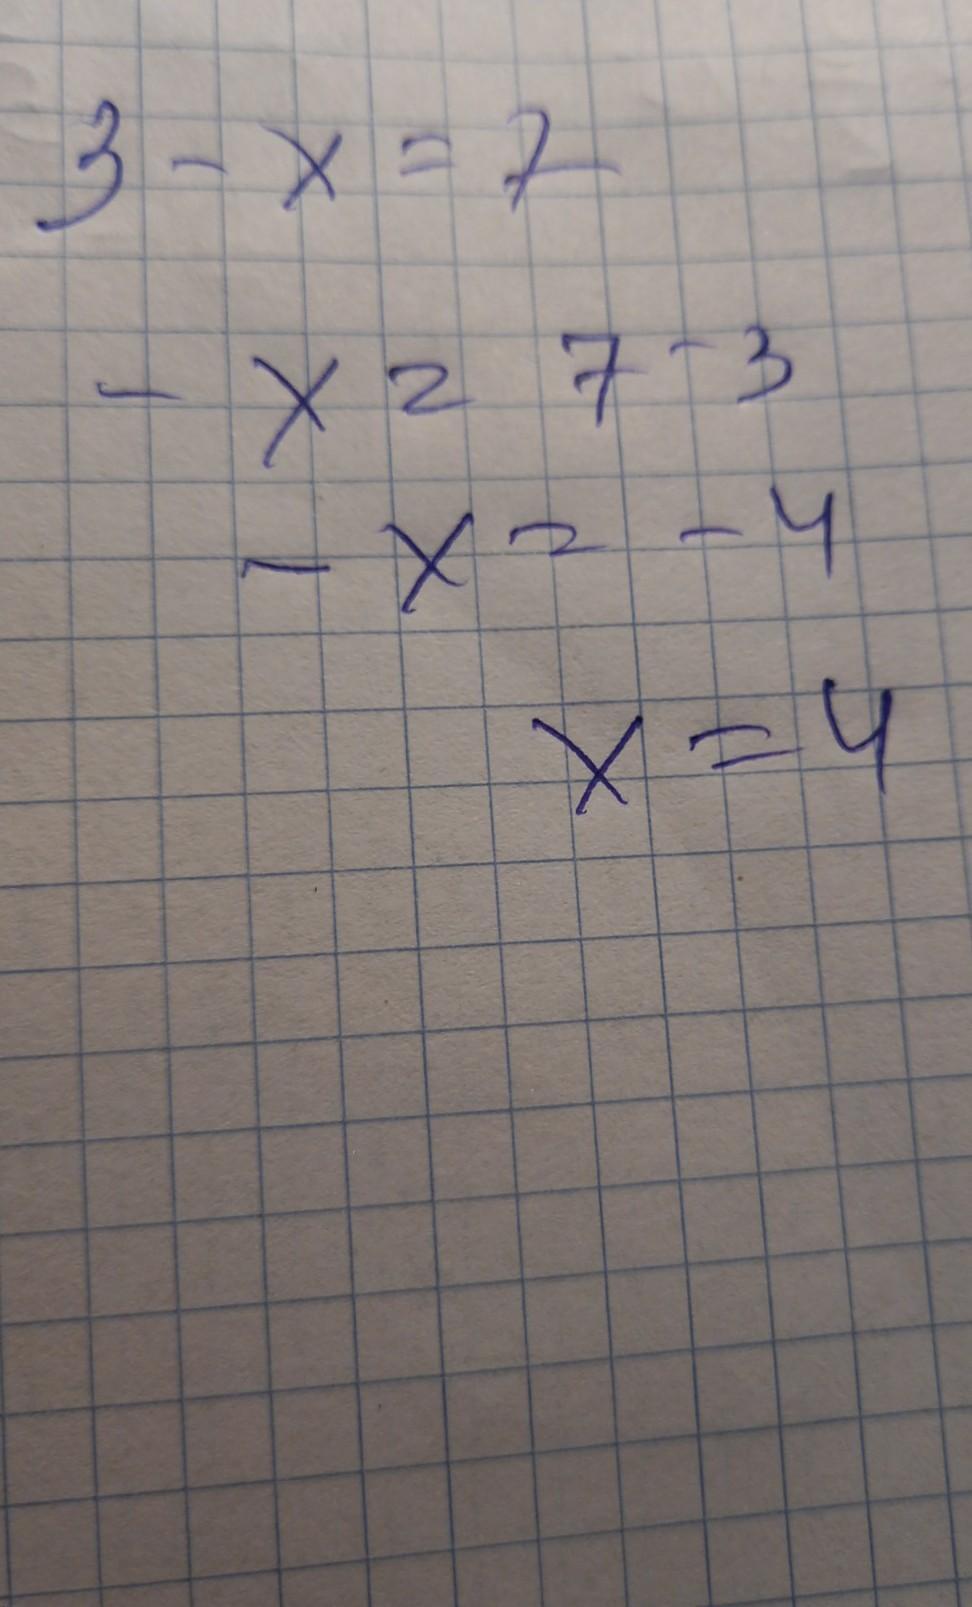 3 - x = 7
- x = 7 - 3
- x = - 4
x = 4